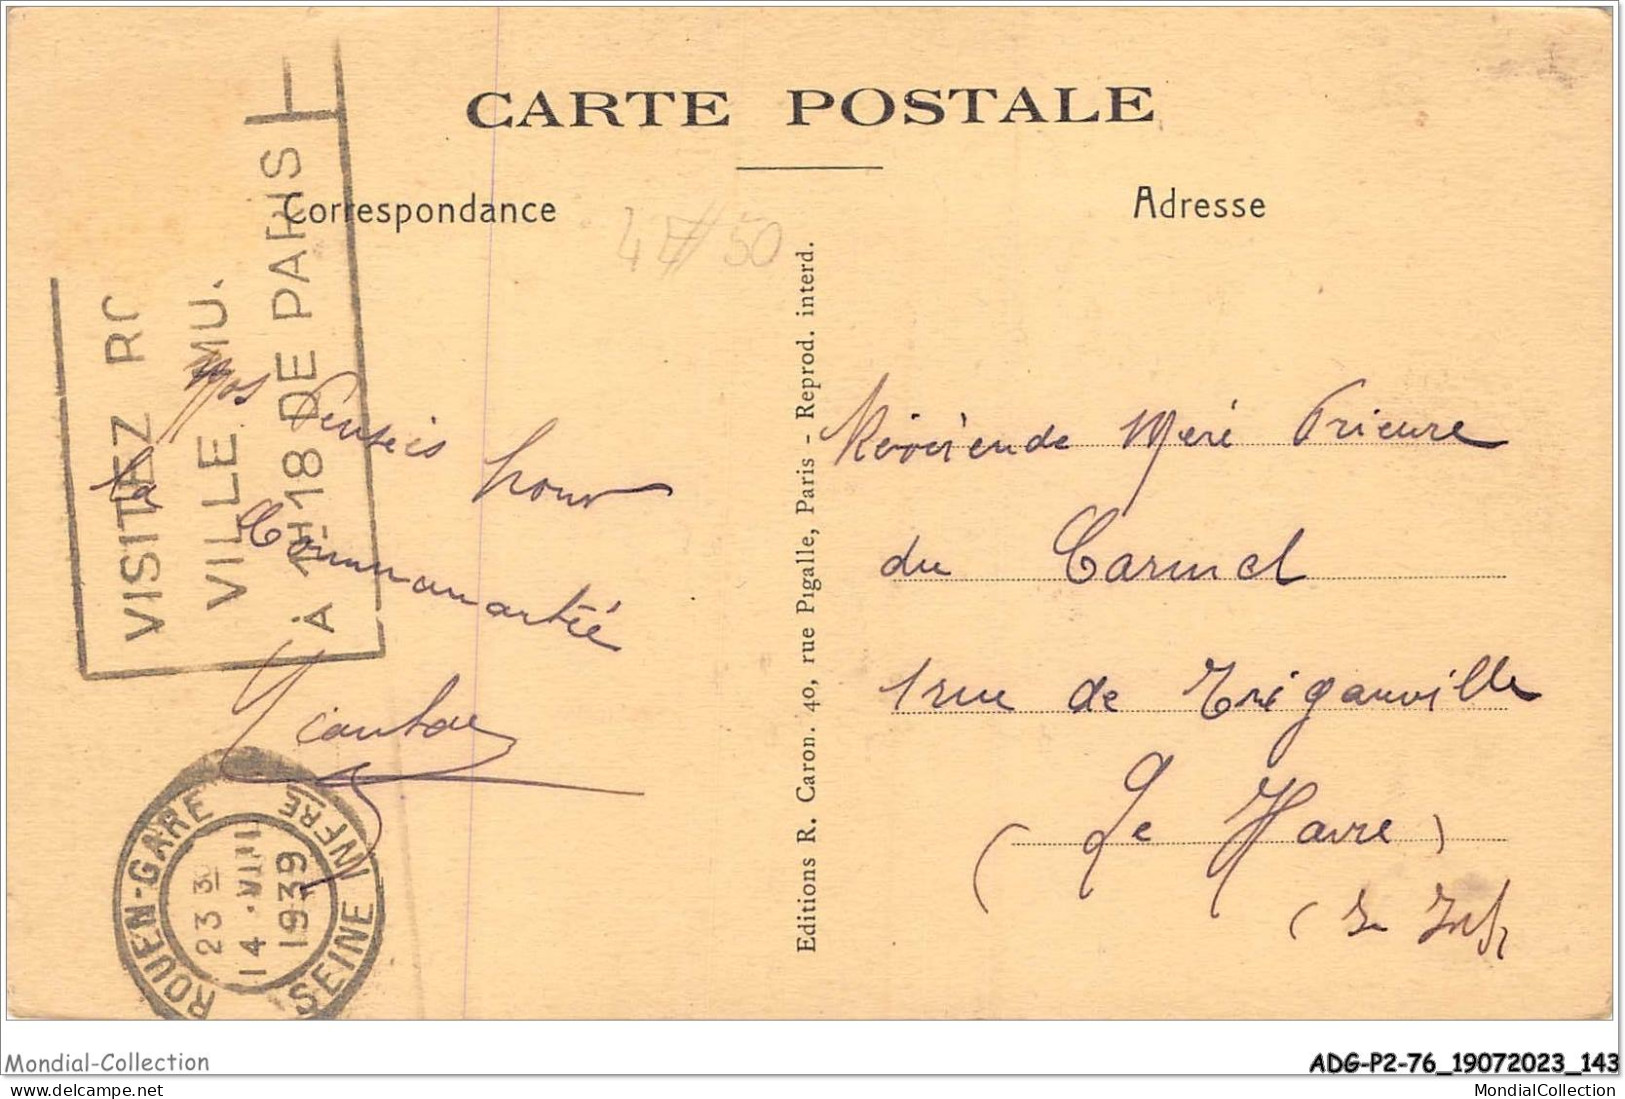 CARTE POSTALE
Correspondance
Adresse
47/50
VISITEZ RO
VILLE MU
À 1H18 DE PARIS
Nos Penseis pour
la Communautée
Editions R. Caron. 40, rue Pigalle, Paris - Reprod. interd.
Révérende Méré Prieure
du Carmel
1 rue de Trigauville
(Le Havre)
(S. Inf
ROUEN-GARE
23 30
14 ·VIII
1939
SEINE INFRE
Mondial-Collection
ADG-P2-76_19072023_143
MondialCollection
MondialCollection